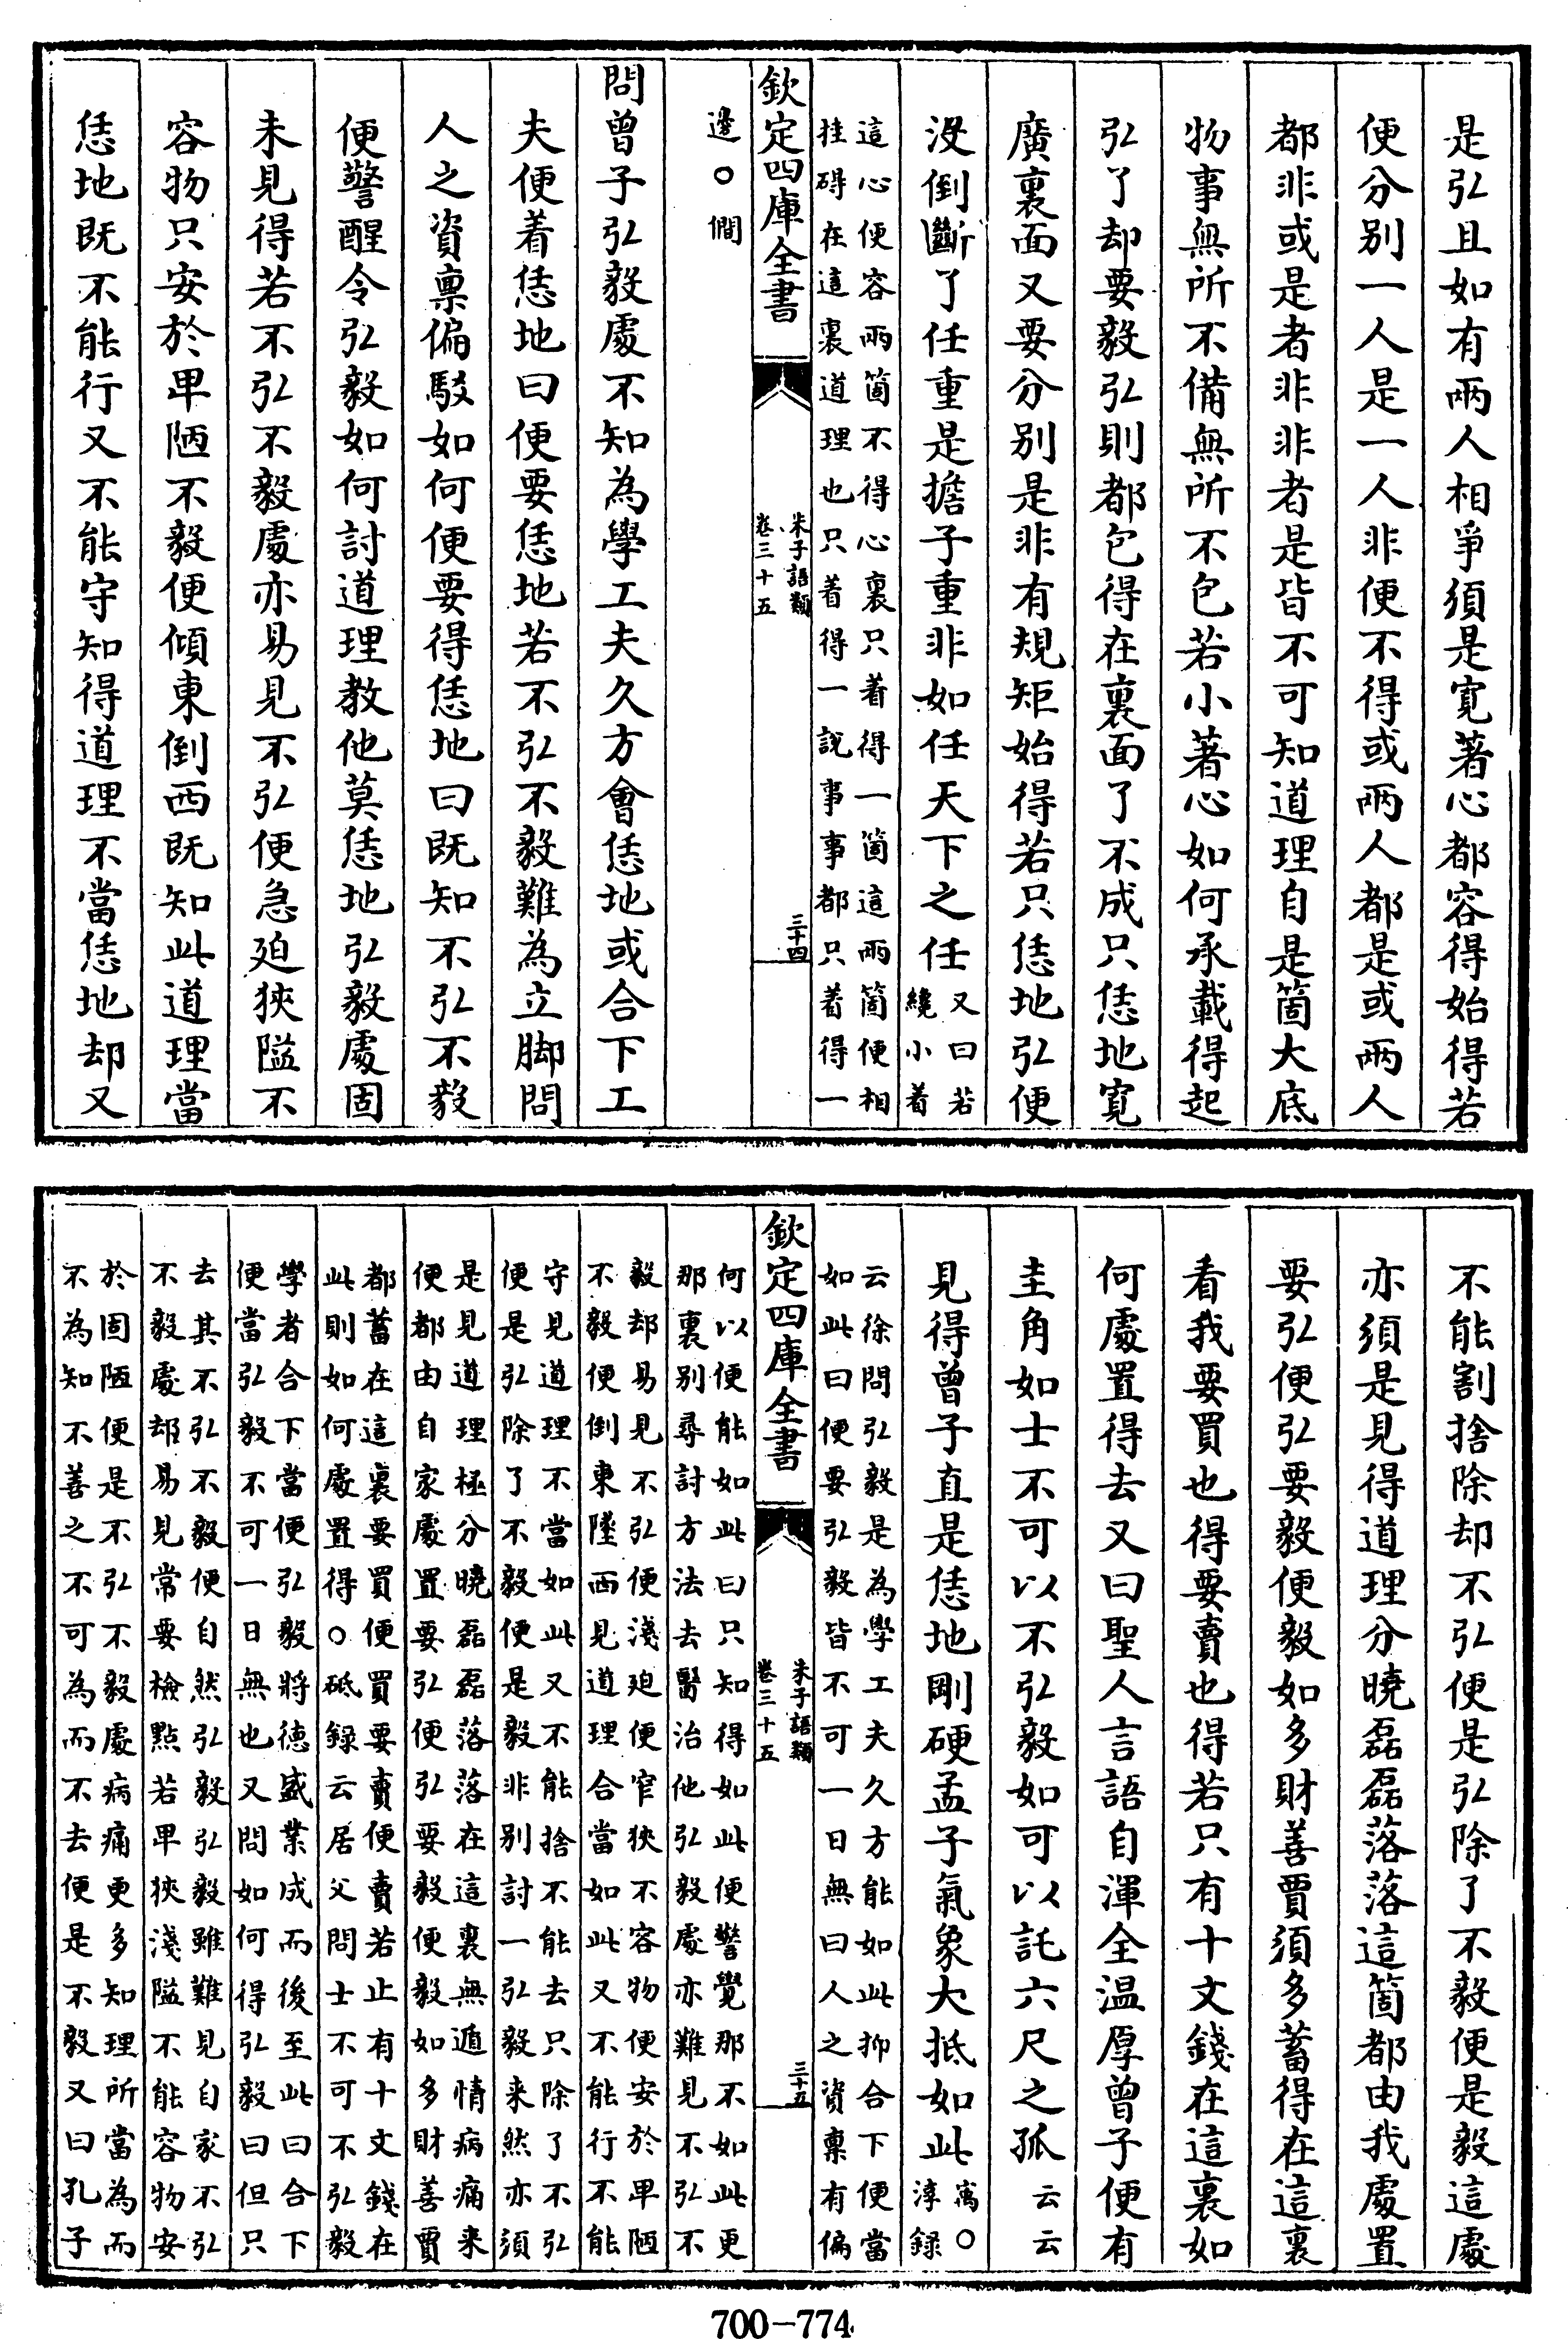 是弘且如有兩人相爭須是寛著心都容得始得若
便分別一人是一人非便不得或兩人都是或兩人
都非或是者非非者是皆不可知道理自是箇大底
物事無所不備無所不包若小著心如何承載得起
弘了却要毅弘則都包得在裏面了不成只恁地寛
廣裏面又要分別是非有規矩始得若只恁地弘便
沒倒斷了任重是擔子重非如任天下之任又曰若
纔小着
這心便容兩箇不得心裏只着得一箇這兩箇便相
挂碍在這裏道理也只着得一說事事都只着得一
欽定四庫全書
朱子語類
卷三十五
三十四
邊○僩
問曾子弘毅處不知為學工夫久方會恁地或合下工
夫便着恁地曰便要恁地若不弘不毅難為立脚問
人之資稟偏駁如何便要得恁地曰既知不弘不毅
便警醒令弘毅如何討道理教他莫恁地弘毅處固
未見得若不弘不毅處亦易見不弘便急廹狹隘不
容物只安於卑陋不毅便傾東倒西既知此道理當
恁地既不能行又不能守知得道理不當恁地却又
不能割捨除却不弘便是弘除了不毅便是毅這處
亦須是見得道理分曉磊磊落落這箇都由我處置
要弘便弘要毅便毅如多財善賈須多蓄得在這裏
看我要買也得要賣也得若只有十文錢在這裏如
何處置得去又曰聖人言語自渾全温厚曾子便有
圭角如士不可以不弘毅如可以託六尺之孤云云
見得曾子直是恁地剛硬孟子氣象大抵如此㝢○
淳録
云徐問弘毅是為學工夫久方能如此抑合下便當
如此曰便要弘毅皆不可一日無曰人之資稟有偏
欽定四庫全書
朱子語類
卷三十五
三十五
何以便能如此曰只知得如此便警覺那不如此更
那裏別尋討方法去醫治他弘毅處亦難見不弘不
毅却易見不弘便淺廹便窄狹不容物便安於卑陋
不毅便倒東墜西見道理合當如此又不能行不能
守見道理不當如此又不能捨不能去只除了不弘
便是弘除了不毅便是毅非別討一弘毅来然亦須
是見道理極分曉磊磊落落在這裏無遁情病痛来
便都由自家處置要弘便弘要毅便毅如多財善賈
都蓄在這裏要買便買要賣便賣若止有十文錢在
此則如何處置得○砥録云居父問士不可不弘毅
學者合下當便弘毅將德盛業成而後至此曰合下
便當弘毅不可一日無也又問如何得弘毅曰但只
去其不弘不毅便自然弘毅弘毅雖難見自家不弘
不毅處却易見常要檢點若卑狹淺隘不能容物安
於固陋便是不弘不毅處病痛更多知理所當為而
不為知不善之不可為而不去便是不毅又曰孔子
700-774